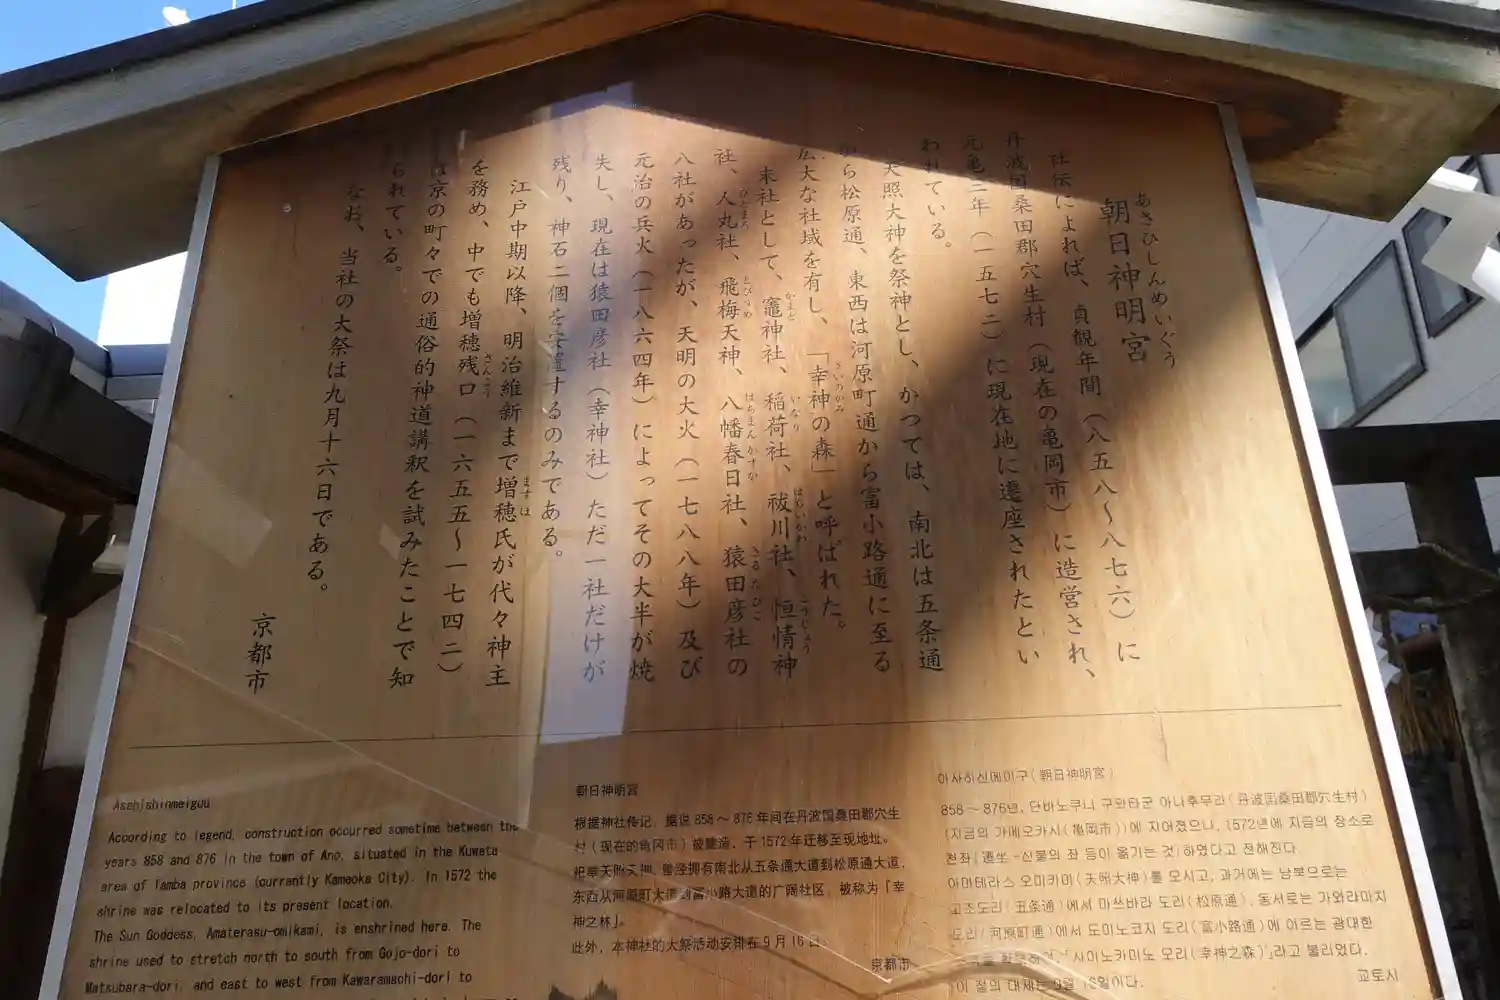 あさひしんめいぐう
朝日神明宮
社伝によれば、貞観年間（八五八〜八七六）に
丹波国桑田郡穴生村（現在の亀岡市）に造営され、
元亀三年（一五七二）に現在地に遷座されたとい
われている。
天照大神を祭神とし、かつては、南北は五条通
から松原通、東西は河原町通から富小路通に至る
広大な社域を有し、「幸神の森」と呼ばれた。
末社として、竈神社、稲荷社、祓川社、恒情神
社、人丸社、飛梅天神、八幡春日社、猿田彦社の
八社があったが、天明の大火（一七八八年）及び
元治の兵火（一八六四年）によってその大半が焼
失し、現在は猿田彦社（幸神社）ただ一社だけが
残り、神石二個を安置するのみである。
江戸中期以降、明治維新まで増穂氏が代々神主
を務め、中でも増穂残口（一六五五〜一七四二）
は京の町々での通俗的神道講釈を試みたことで知
られている。
なお、当社の大祭は九月十六日である。
京都市
Asahishinmeigou
According to legend, construction occurred sometime between the
years 858 and 876 in the town of Ano, situated in the Kuwata
area of Tamba province (currently Kameoka City). In 1572 the
shrine was relocated to its present location.
The Sun Goddess, Amaterasu-omikami, is enshrined here. The
shrine used to stretch north to south from Gojo-dori to
Matsubara-dori, and east to west from Kawaramachi-dori to
朝日神明宫
根据神社传记，据说858～876年间在丹波国桑田郡穴生
村（现在的龟冈市）被建造，于1572年迁移至现地址。
祀奉天照大神，曾经拥有南北从五条通大道到松原通大道，
东西从河原町大道到富小路大道的广阔社区，被称为「幸
神之林」。
此外，本神社的大祭活动安排在9月16日。
京都市
아사히신메이구(朝日神明宮)
858～876년, 단바노쿠니 구와타군 아나후무라(丹波国桑田郡穴生村)
(지금의 가메오카시(亀岡市))에 지어졌으나, 1572년에 지금의 장소로
천좌(遷坐-신불의 좌 등이 옮기는 것)하였다고 전해진다.
아마테라스 오미카미(天照大神)를 모시고, 과거에는 남북으로는
고조도리(五条通)에서 마쓰바라 도리(松原通), 동서로는 가와라마치
도리(河原町通)에서 도미노코지 도리(富小路通)에 이르는 광대한
사이노카미노 모리(幸神之森)」라고 불리었다.
이 절의 대제는 9월 16일이다.
교토시